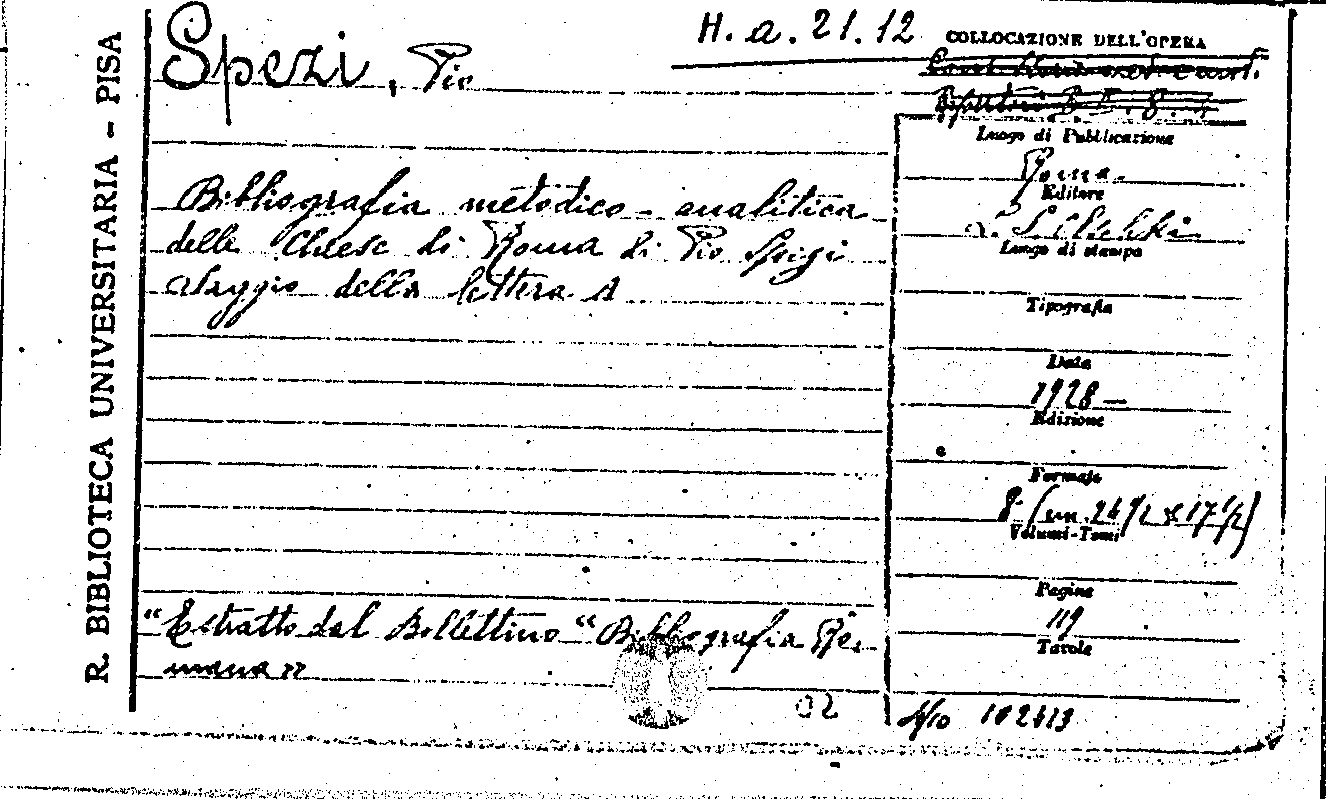 R. BIBLIOTECA UNIVERSITARIA - PISA
Spezi, Pio
H. a. 21. 12
COLLOCAZIONE DELL'OPERA
Luogo di Pubblicazione
Roma.
Editore
Luogo di stampa
Tipografia
Data
1928 -
Edizione
Formato
8° (cm. 24 1/2 x 17 1/2)
Volumi-Tomi
Pagine
119
Tavole
Bibliografia metodico - analitica
delle Chiese di Roma di Pio Spezi
Saggio della lettera A
"Estratto dal Bollettino "Bibliografia Ro-
mana"
02